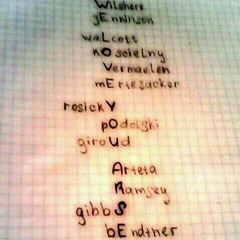 Wilshere
jEnkinson
waLcott
kOscielny
Vermaelen
mErtesacker
rosickY
pOdolski
giroUd
Arteta
Ramsey
gibbS
bEndtner